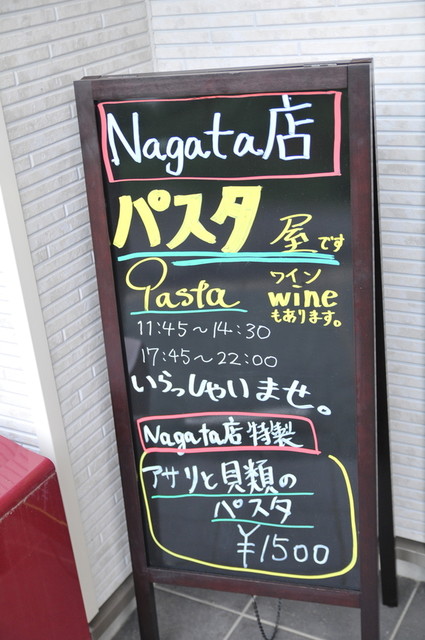 Nagata店
パスタ屋です
Pasta
ワイン
wine
もあります。
11:45〜14:30
17:45〜22:00
いらっしゃいませ。
Nagata店特製
アサリと貝類の
パスタ
¥1500